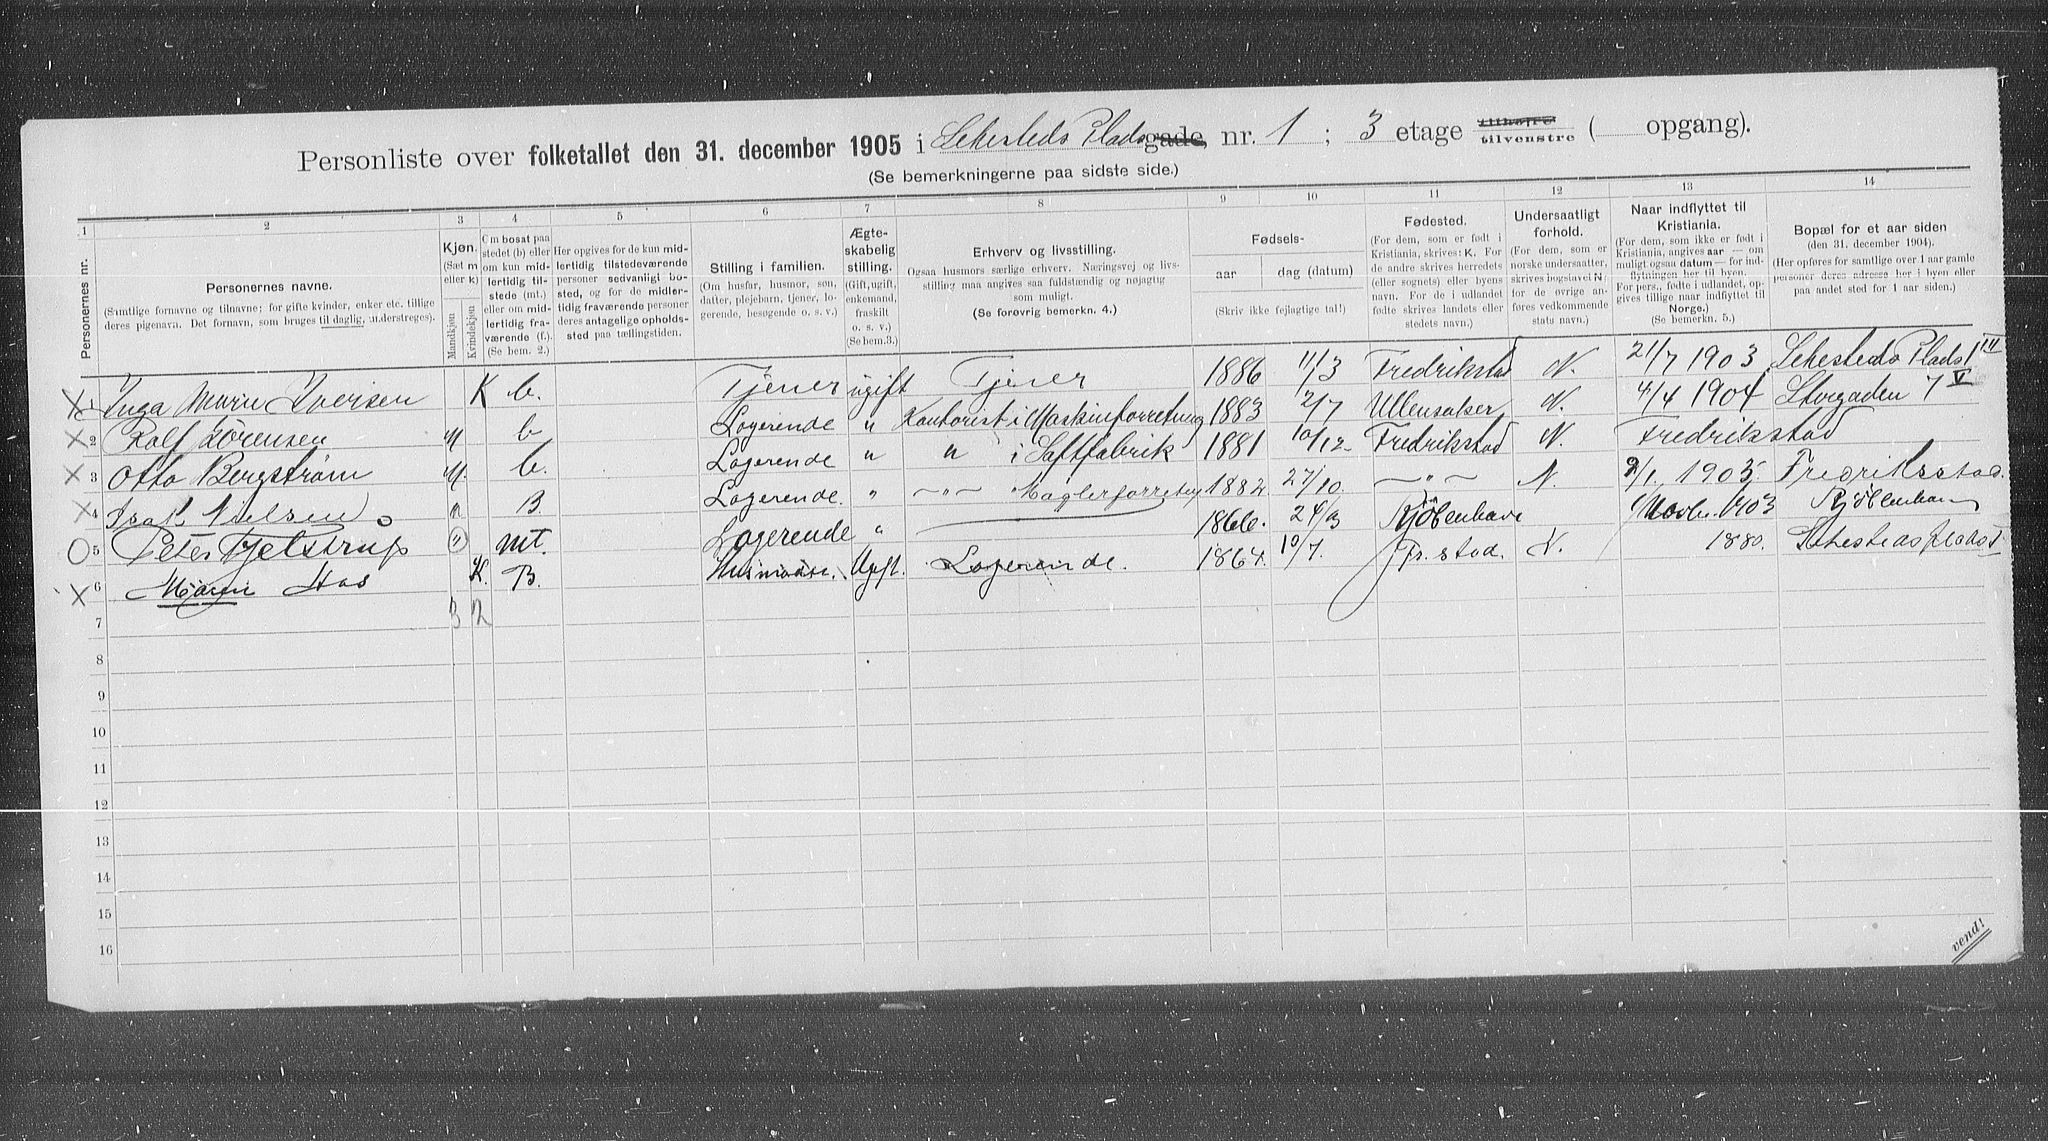 Personliste over folketallet den 31. december 1905 i Sehesteds Plads gade, nr. 1 ; 3 etage tilhøire tilvenstre ( opgang).
(Se bemerkningerne paa sidste side.)
1 2 3 4 5 6 7 8 9 10 11 12 13 14
Personernes nr.
Personernes navne.
(Samtlige fornavne og tilnavne; for gifte kvinder, enker etc. tillige deres pigenavn. Det fornavn, som bruges til daglig, understreges).
Kjøn.
(Sæt m eller k)
Mandkjøn
Kvindekjøn
Om bosat paa stedet (b) eller om kun midlertidig tilstede (mt.) eller om midlertidig fraværende (f.). (Se bem. 2.)
Her opgives for de kun midlertidig tilstedeværende personer sedvanligt bosted, og for de midlertidig fraværende personer deres antagelige opholdssted paa tællingstiden.
Stilling i familien.
(Om husfar, husmor, søn, datter, plejebarn, tjener, logerende, besøgende o. s. v.)
Ægteskabelig stilling.
(Gift, ugift, enkemand, fraskilt o. s. v.) (Se bem.3.)
Erhverv og livsstilling.
Ogsaa husmors særlige erhverv. Næringsvej og livsstilling maa angives saa fuldstændig og nøjagtig som muligt.
(Se forøvrig bemerkn. 4.)
Fødsels-
aar dag (datum)
(Skriv ikke fejlagtige tal!)
Fødested.
(For dem, som er født i Kristiania, skrives: K. For de andre skrives herredets (eller sognets) eller byens navn. For de i udlandet fødte skrives landets eller stedets navn.)
Undersaatligt forhold.
(For dem, som er norske undersaatter, skrives bogstavet N; for de øvrige anføres vedkommende stats navn.)
Naar indflyttet til Kristiania.
(For dem, som ikke er født i Kristiania, angives aar — om muligt ogsaa datum — for indflytningen her til byen. For pers., fødte i udlandet, opgives tillige naar indflyttet til Norge.)
(Se bemerkn. 5.)
Bopæl for et aar siden
(den 31. december 1904).
(Her opføres for samtlige over 1 aar gamle personer deres adresse her i byen eller paa andet sted for 1 aar siden.)
X 1 Inga Marie Iversen K b. Tjener ugift Tjener 1886 11/3 Fredrikstad N. 21/7 1903 Sehesteds Plads 1 III
X 2 Rolf Sørensen M b Logerende " Kontorist i Maskinforretning 1883 2/7 Ullensaker N. 4/4 1904 Storgaden 7 V
X 3 Otto Bergstrøm M. b. Logerende " " i Saftfabrik 1881 10/12 Fredrikstad N. Fredrikstad
X 4 Isak Nielsen m B Logerende. " —"— Mæglerforretng 1882 27/10. —"— N. 2/1. 1905. Fredriksstad.
O 5 Peter Fjelstrup mt. Logerende " 1866. 24/3 Kjöbenhavn Novbr. 1903 Kjöbenhavn
X 6 Maren K. B. Husmoder. Ugift. Logerende. 1864. 10/7. Fr. stad. N. 1880. Sehesteds plads 1
7 3 2
8
9
10
11
12
13
14
15
16
vend!